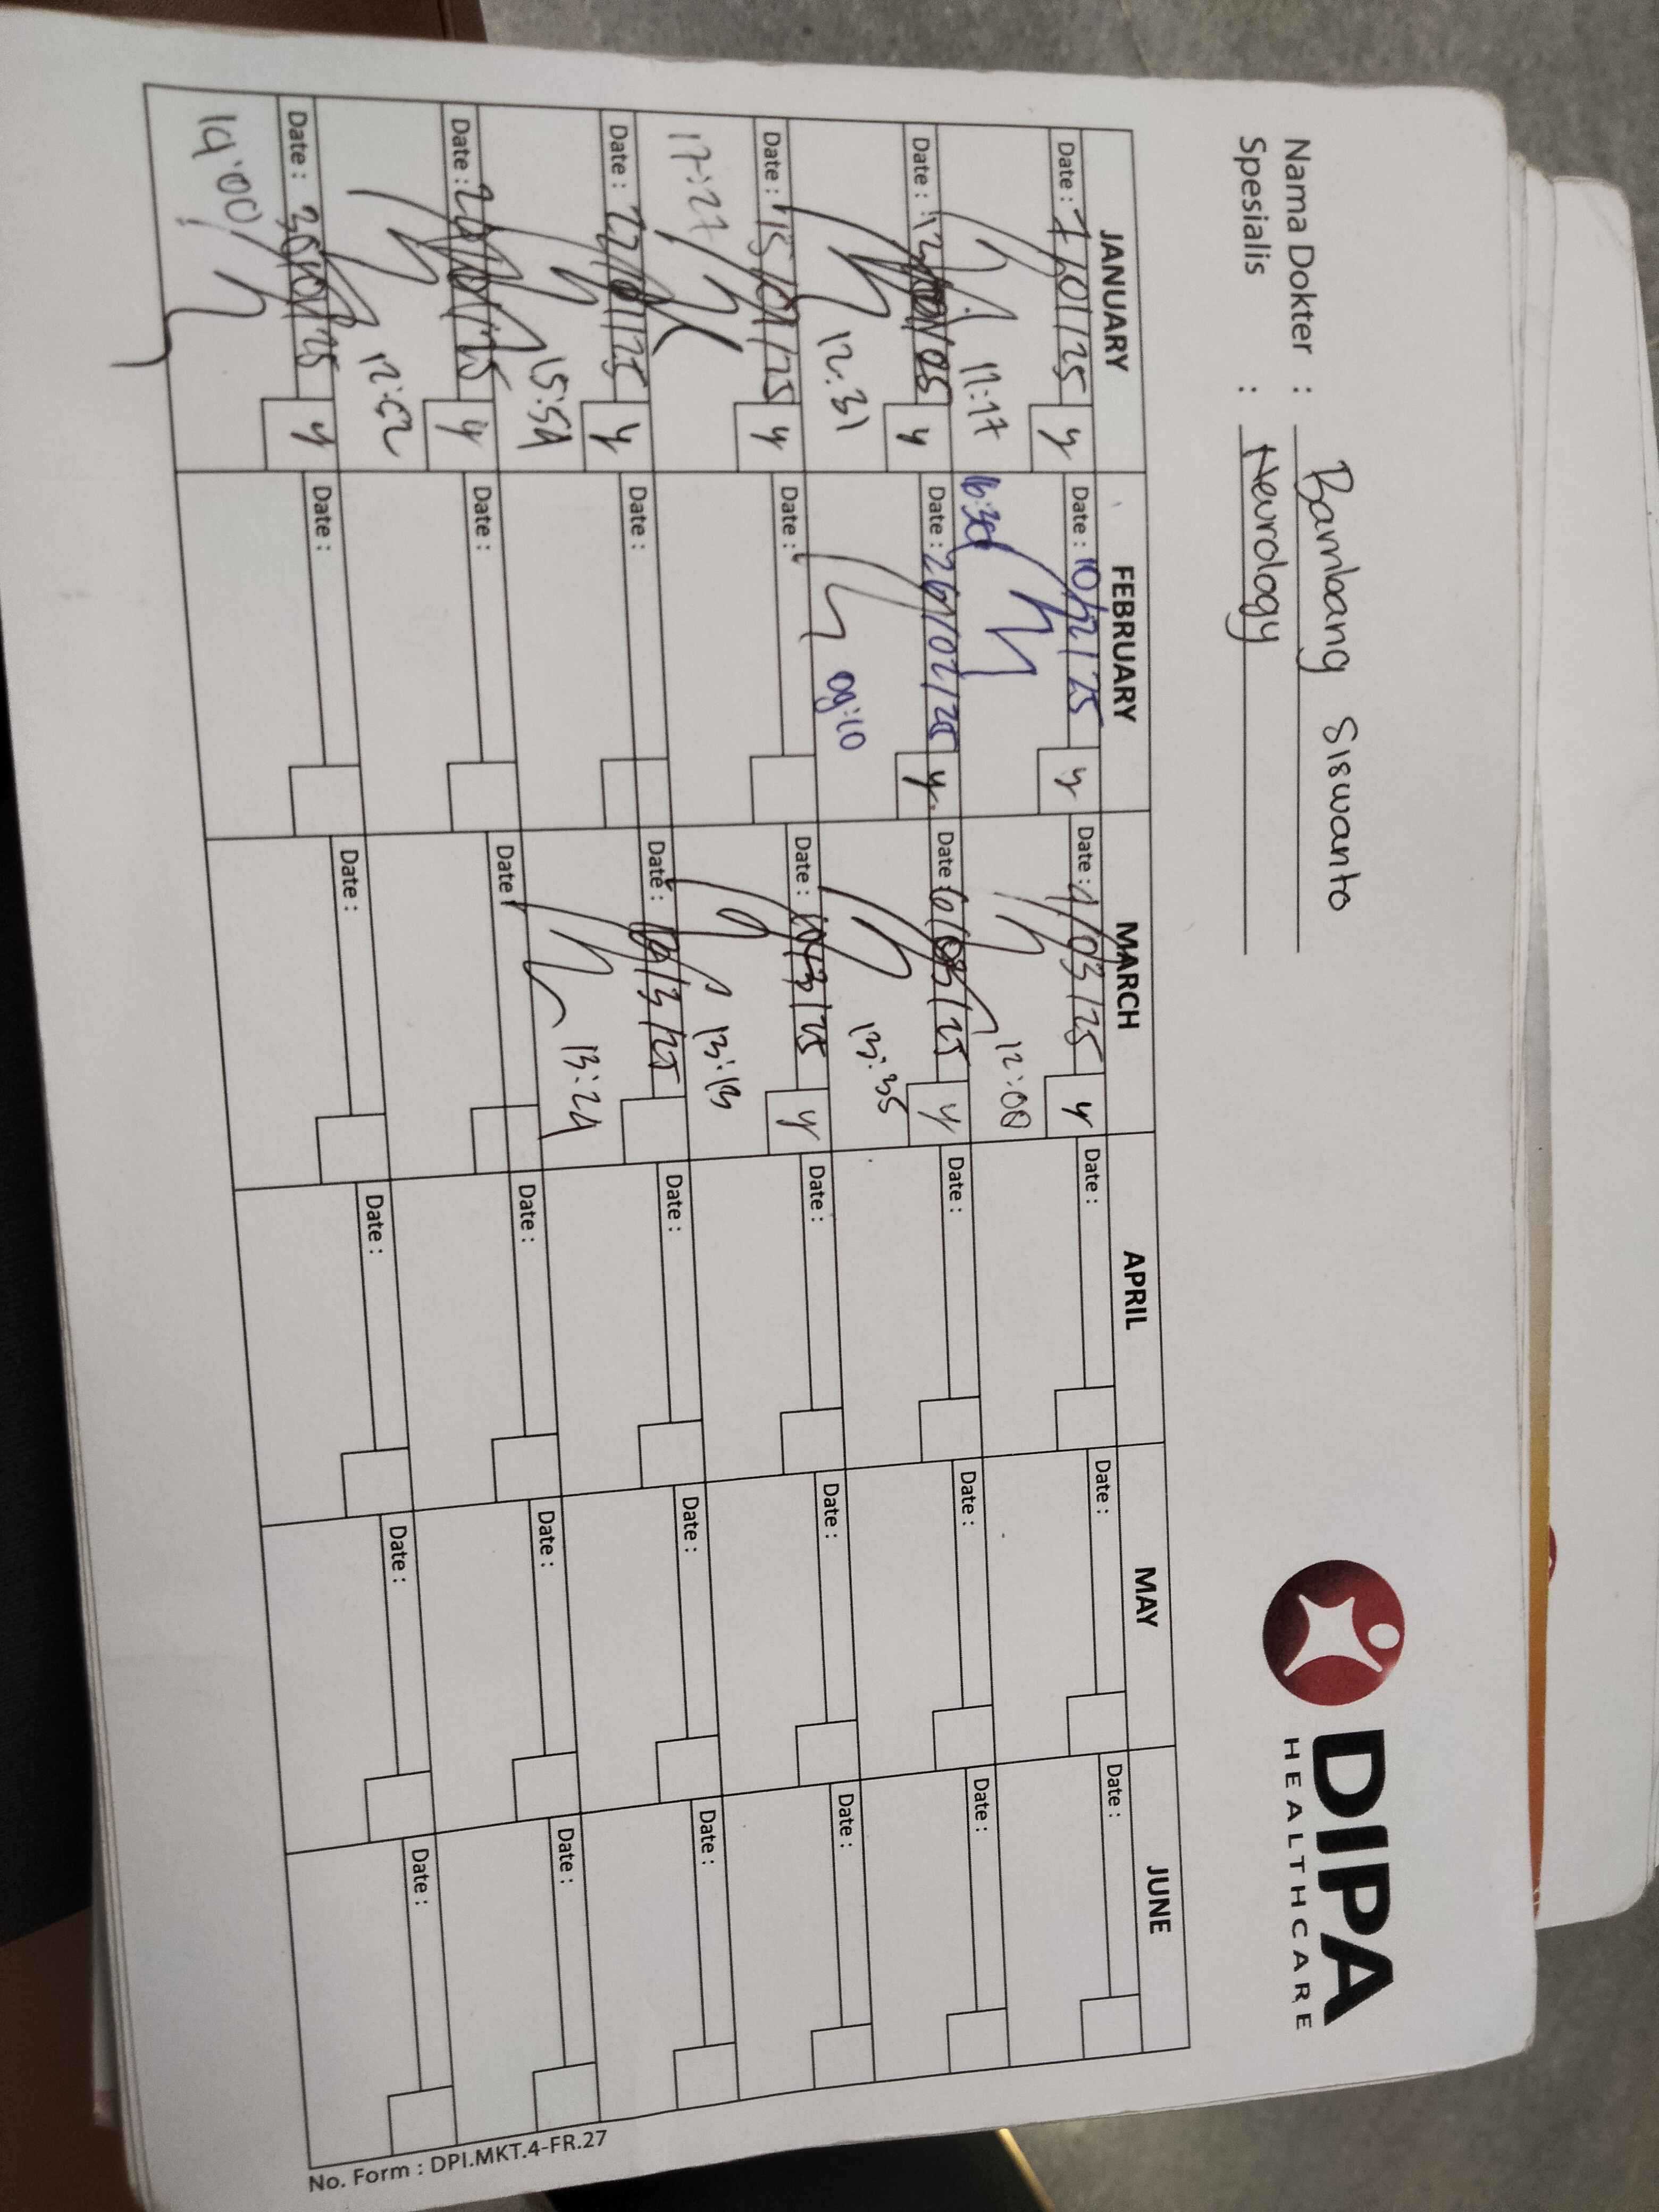 Nama Dokter : Bambang Siswanto
Spesialis : Neurology
DIPA
HEALTHCARE
JANUARY FEBRUARY MARCH APRIL MAY JUNE
Date : 7/01/25 y Date : 10/2/25 y Date : 4/03/25 y Date : Date : Date :
11:17 16:30 12:00
Date : y Date : 26/02/25 y Date : 6/03/25 y Date : Date : Date :
12:31 09:10 13:35
Date : 15/01/25 y Date : Date : 10/3/25 y Date : Date : Date :
17:27 13:13
Date : 22/01/25 y Date : Date : Date : Date : Date :
15:54 13:24
Date : y Date : Date : Date : Date : Date :
12:52
Date : 30/01/25 y Date : Date : Date : Date : Date :
14:00
No. Form : DPI.MKT.4-FR.27